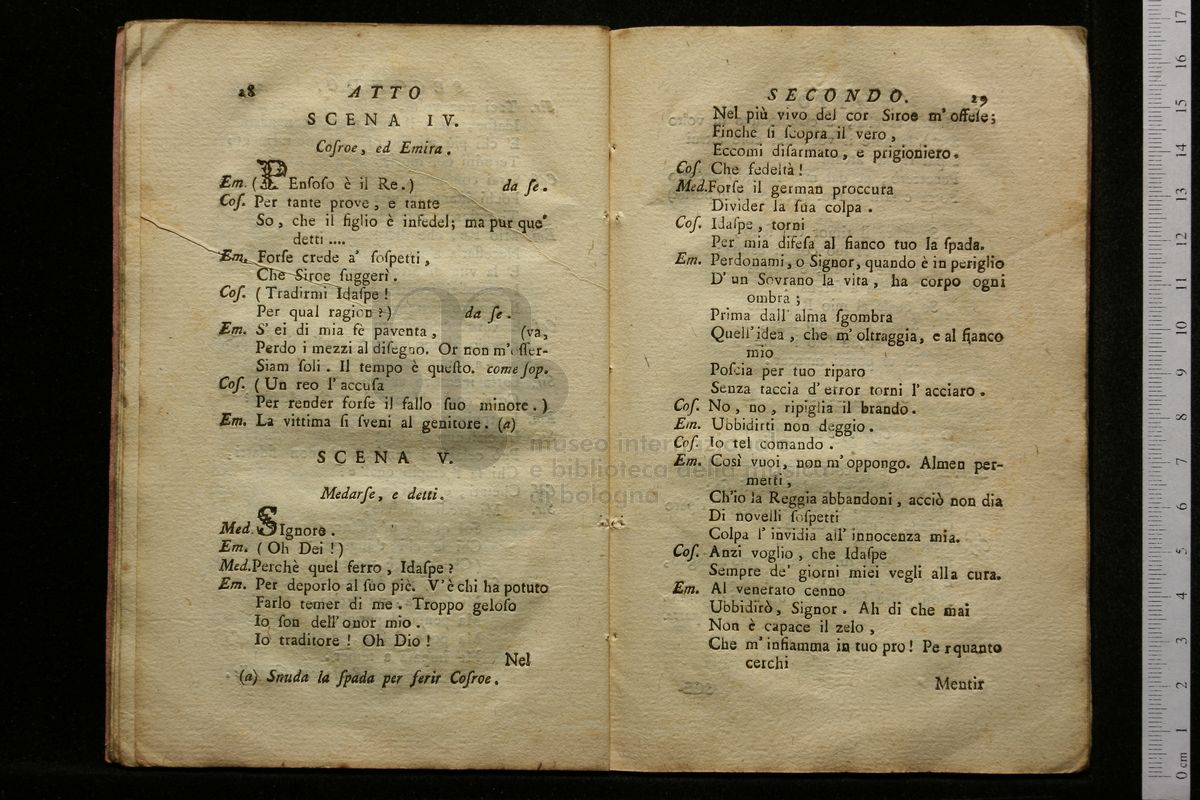 28 ATTO
SCENA IV.
Coſroe, ed Emira.
Em. (PEnſoſo è il Re.) da ſe.
Coſ. Per tante prove, e tante
So, che il figlio è infedel; ma pur que'
detti ....
Em. Forſe crede a' ſoſpetti,
Che Siroe ſuggerì.
Coſ. (Tradirmi Idaſpe!
Per qual ragion?) da ſe.
Em. S' ei di mia fè paventa, (va,
Perdo i mezzi al diſegno. Or non m' oſſer-
Siam ſoli. Il tempo è queſto. come ſop.
Coſ. (Un reo l' accuſa
Per render forſe il fallo ſuo minore.)
Em. La vittima ſi ſveni al genitore. (a)
SCENA V.
Medarſe, e detti.
Med. SIgnore.
Em. (Oh Dei!)
Med. Perchè quel ferro, Idaſpe?
Em. Per deporlo al ſuo piè. V'è chi ha potuto
Farlo temer di me. Troppo geloſo
Io ſon dell' onor mio.
Io traditore! Oh Dio!
Nel
(a) Snuda la ſpada per ferir Coſroe.
SECONDO. 29
Nel più vivo del cor Siroe m' offeſe;
Finche ſi ſcopra il vero,
Eccomi diſarmato, e prigioniero.
Coſ. Che fedeltà!
Med. Forſe il german proccura
Divider la ſua colpa.
Coſ. Idaſpe, torni
Per mia difeſa al fianco tuo la ſpada.
Em. Perdonami, o Signor, quando è in periglio
D' un Sovrano la vita, ha corpo ogni
ombra;
Prima dall' alma ſgombra
Quell' idea, che m' oltraggia, e al fianco
mio
Poſcia per tuo riparo
Senza taccia d' error torni l' acciaro.
Coſ. No, no, ripiglia il brando.
Em. Ubbidirti non deggio.
Coſ. Io tel comando.
Em. Così vuoi, non m' oppongo. Almen per-
metti,
Ch'io la Reggia abbandoni, acciò non dia
Di novelli ſoſpetti
Colpa l' invidia all' innocenza mia.
Coſ. Anzi voglio, che Idaſpe
Sempre de' giorni miei vegli alla cura.
Em. Al venerato cenno
Ubbidirò, Signor. Ah di che mai
Non è capace il zelo,
Che m' infiamma in tuo pro! Pe rquanto
cerchi
Mentir
museo internazionale
e biblioteca della musica
di bologna
0 cm 1 2 3 4 5 6 7 8 9 10 11 12 13 14 15 16 17